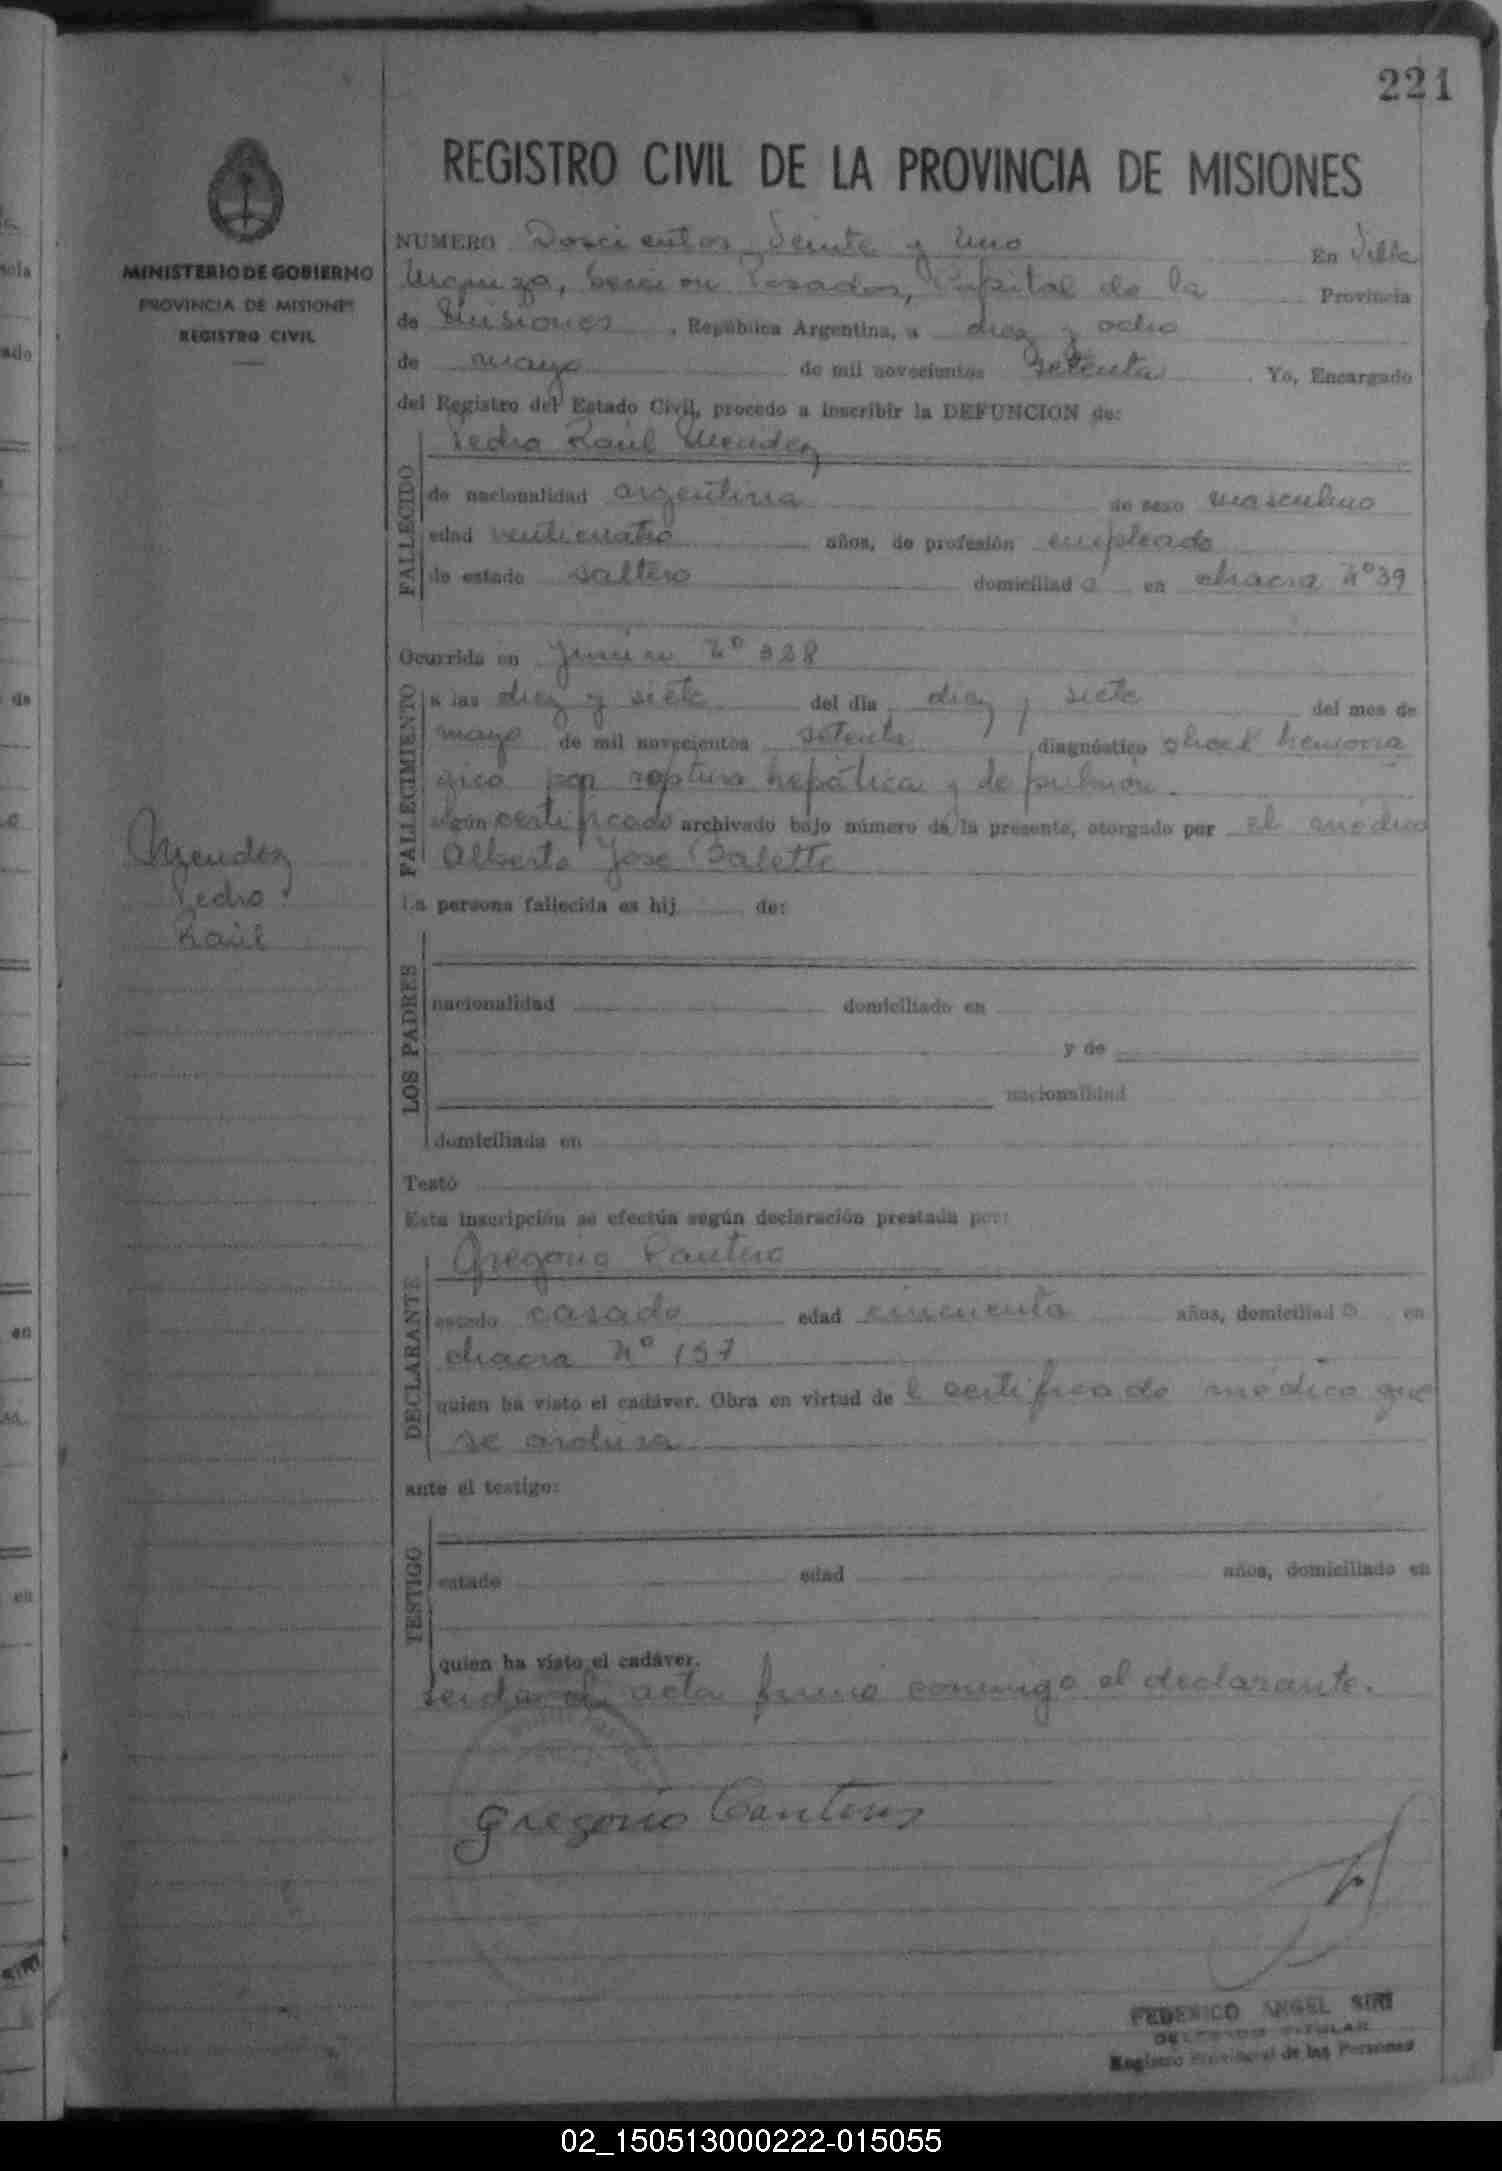 221
REGISTRO CIVIL DE LA PROVINCIA DE MISIONES
MINISTERIO DE GOBIERNO
PROVINCIA DE MISIONES
REGISTRO CIVIL
NUMERO Doscientos Veinte y Uno En Villa
Urquiza, Seccion Posadas, Capital de la Provincia
de Misiones, República Argentina, a diez y ocho
de mayo de mil novecientos setenta. Yo, Encargado
del Registro del Estado Civil, procedo a inscribir la DEFUNCION de:
Pedro Raúl Mendez
FALLECIDO
de nacionalidad argentina de sexo masculino
edad venticuatro años, de profesión empleado
de estado soltero domiciliado en chacra Nº 39
Ocurrida en Junin Nº 328
FALLECIMIENTO
a las diez y siete del día diez y siete del mes de
mayo de mil novecientos setenta, diagnóstico shock hemorra
gico por ruptura hepática y de pulmón.
según certificado archivado bajo número de la presente, otorgado por el médico
Alberto José Balette
Mendez
Pedro
Raúl
La persona fallecida es hij de:
LOS PADRES
nacionalidad domiciliado en
y de
nacionalidad
domiciliada en
Testó
Esta inscripción se efectúa según declaración prestada por:
Gregorio Cantero
DECLARANTE
estado casado edad cincuenta años, domiciliado en
chacra Nº 157
quien ha visto el cadáver. Obra en virtud del certificado médico que
se archiva
ante el testigo:
TESTIGO
estado edad años, domiciliado en
quien ha visto el cadáver.
Leida el acta firmó conmigo el declarante.
Gregorio Canteros
FEDERICO ANGEL SIRI
DELEGADO TITULAR
Registro Provincial de las Personas
02_150513000222-015055